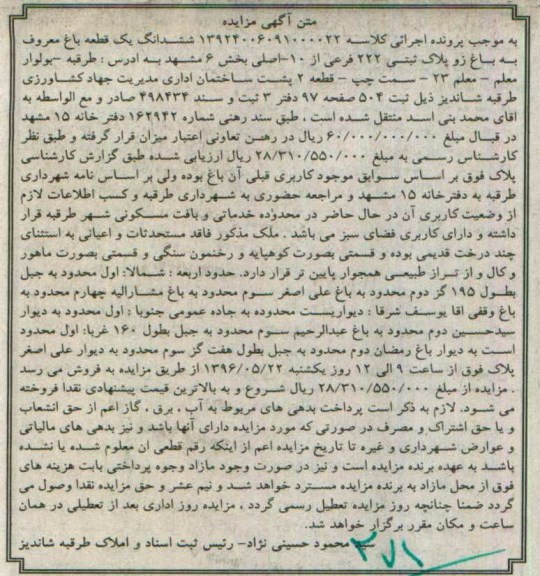 متن آگهی مزایده
به موجب پرونده اجرائی کلاسه ۱۳۹۲۴۰۰۶۰۹۱۰۰۰۰۲۲ ششدانگ یک قطعه باغ معروف
به باغ زو پلاک ثبتی ۲۲۲ فرعی از ۱۰-اصلی بخش ۶ مشهد به ادرس : طرقبه -بولوار
معلم - معلم ۲۳ - سمت چپ - قطعه ۲ پشت ساختمان اداری مدیریت جهاد کشاورزی
طرقبه شاندیز ذیل ثبت ۵۰۴ صفحه ۹۷ دفتر ۳ ثبت و سند ۴۹۸۴۳۴ صادر و مع الواسطه به
اقای محمد بنی اسد منتقل شده است ، طبق سند رهنی شماره ۱۶۲۹۴۲ دفتر خانه ۱۵ مشهد
در قبال مبلغ ۶۰/۰۰۰/۰۰۰/۰۰۰ ریال در رهن تعاونی اعتبار میزان قرار گرفته و طبق نظر
کارشناس رسمی به مبلغ ۲۸/۳۱۰/۵۵۰/۰۰۰ ریال ارزیابی شده طبق گزارش کارشناسی
پلاک فوق بر اساس سوابق موجود کاربری قبلی آن باغ بوده ولی بر اساس نامه شهرداری
طرقبه به دفترخانه ۱۵ مشهد و مراجعه حضوری به شهرداری طرقبه و کسب اطلاعات لازم
از وضعیت کاربری آن در حال حاضر در محدوده خدماتی و بافت مسکونی شهر طرقبه قرار
داشته و دارای کاربری فضای سبز می باشد . ملک مذکور فاقد مستحدثات و اعیانی به استثنای
چند درخت قدیمی بوده و قسمتی بصورت کوهپایه و رخنمون سنگی و قسمتی بصورت ماهور
و کال و از تراز طبیعی همجوار پایین تر قرار دارد. حدود اربعه : شمالا: اول محدود به جبل
بطول ۱۹۵ گز دوم محدود به باغ علی اصغر سوم محدود به باغ مشارالیه چهارم محدود به
باغ وقفی اقا یوسف شرقا : دیواریست محدوده به جاده عمومی جنوبا : اول محدود به دیوار
سیدحسین دوم محدود به باغ عبدالرحیم سوم محدود به جبل بطول ۱۶۰ غربا: اول محدود
است به دیوار باغ رمضان دوم محدود به جبل بطول هفت گز سوم محدود به دیوار علی اصغر
پلاک فوق از ساعت ۹ الی ۱۲ روز یکشنبه ۱۳۹۶/۰۵/۲۲ از طریق مزایده به فروش می رسد
. مزایده از مبلغ ۲۸/۳۱۰/۵۵۰/۰۰۰ ریال شروع و به بالاترین قیمت پیشنهادی نقدا فروخته
می شود. لازم به ذکر است پرداخت بدهی های مربوط به آب ، برق ، گاز اعم از حق انشعاب
و یا حق اشتراک و مصرف در صورتی که مورد مزایده دارای آنها باشد و نیز بدهی های مالیاتی
و عوارض شهرداری و غیره تا تاریخ مزایده اعم از اینکه رقم قطعی ان معلوم شده یا نشده
باشد به عهده برنده مزایده است و نیز در صورت وجود مازاد وجوه پرداختی بابت هزینه های
فوق از محل مازاد به برنده مزایده مسترد خواهد شد و نیم عشر و حق مزایده نقدا وصول می
گردد ضمنا چنانچه روز مزایده تعطیل رسمی گردد ، مزایده روز اداری بعد از تعطیلی در همان
ساعت و مکان مقرر برگزار خواهد شد.
سید محمود حسینی نژاد- رئیس ثبت اسناد و املاک طرقبه شاندیز